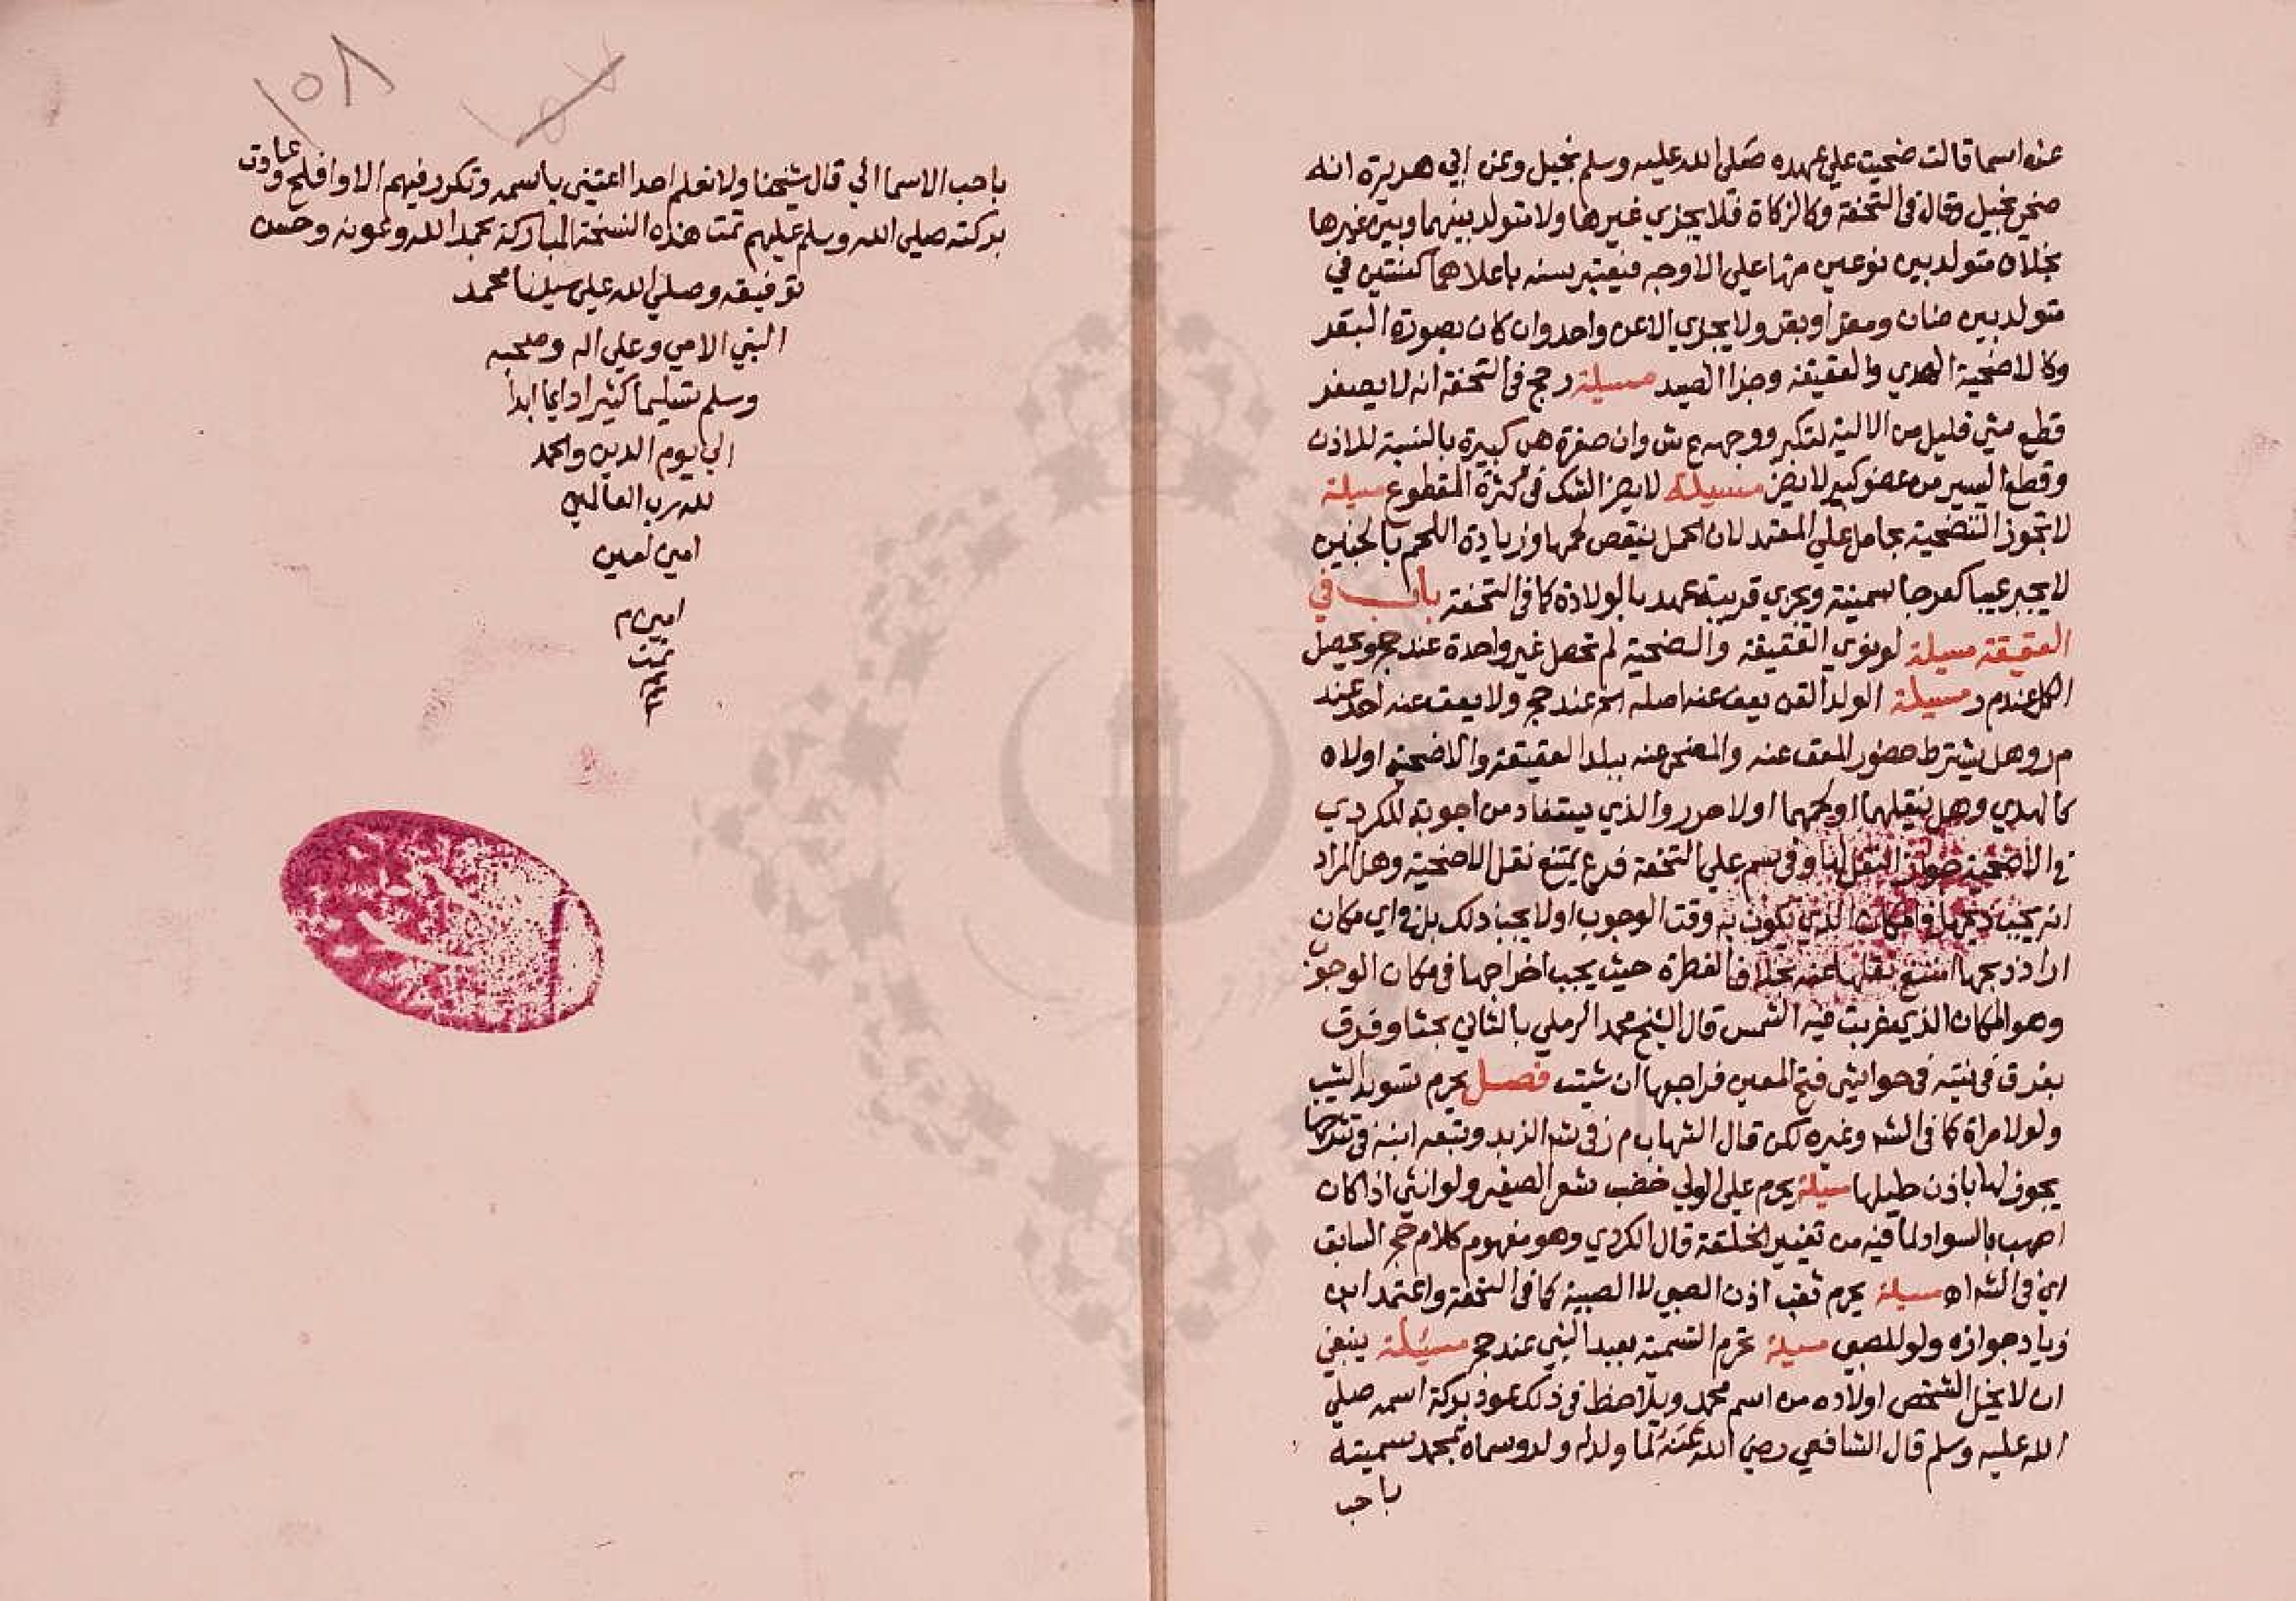 عن اسما قالت ضحيت علي عهده صلى الله عليه وسلم بخيل وعن ابي هريرة انه
ضحي بخيل وقال في التحفة وكالزكاة فلا يجزي غيرها ولا متولد بينهما وبين غيرها
بخلاف متولد بين نوعين منها علي الاوجه فيعتبر بسنه باعلاهما كسنتين في
متولد بين ضان ومعز او بقر ولا يجزي الا عن واحد وان كان بصورة البقر
وكالاضحية الهدي والعقيقة وجزا الصيد مسيلة رجح في التحفة انه لا يضر
قطع شي قليل من الالية لتكبر ووجهه ع ش وان صغرة هي كبيرة بالنسبة للاذن
وقطع اليسير من عضو كبير لا يضر مسيلة لا يضر الشك في كثرة المقطوع مسيلة
لا تجوز التضحية بحامل علي المعتمد لان الحمل ينقص لحمها وزيادة اللحم بالجنين
لا يجبر عيبا كعرجا سمينة وتجزي قريبة عهد بالولادة كما في التحفة باب في
العقيقة مسيلة لو نوي العقيقة والضحية لم تحصل غير واحدة عند حج ويحصل
الكل عند م ر مسيلة الولد القن يعق عنه اصله الحر عند حج ولا يعق عنه احد عند
م ر وهل يشترط حضور المعق عنه والمضحي عنه ببلد العقيقة والاضحية او لا ه
كالهدي وهل ينقلهما او لحمهما او لا حرر والذي يستفاد من اجوبة للكردي
في الاضحية جواز النقل لها وفي سم علي التحفة فرع يمتنع نقل الاضحية وهل المراد
انه يجب ذبحها في المكان الذي تكون به وقت الوجوب او لا يجب ذلك بل في اي مكان
اراد ذبحها امتنع نقلها عنه بخلاف الفطرة حيث يجب اخراجها في مكان الوجوب
وهو المكان الذي غربت فيه الشمس قال الشيخ محمد الرملي بالثاني بحثا وفرق
بفرق في حواشي فتح المعين فراجعها ان شيت فصل يحرم تسويد الشيب
ولو لامراة كما في الشر وغيره لكن قال الشهاب م ر في شر الزبد وتبعه ابنه في شرحها
يجوز لها باذن حليلها مسيلة يحرم علي الولي خضب شعر الصغير ولو انثي اذا كان
اصهب بالسواد لما فيه من تغيير الخلقة قال الكردي وهو مفهوم كلام حج السابق
اي في الشر اه مسيلة يحرم ثقب اذن الصبي لا الصبية كما في التحفة واعتمد ابن
زياد جوازه ولو للصبي مسيلة تحرم التسمية بعبد النبي عند حج مسيلة ينبغي
ان لا يخل الشخص اولاده من اسم محمد ويلاحظ في ذلك عود بركة اسمه صلي
الله عليه وسلم قال الشافعي رضي الله عنه لما ولد له ولد وسماه بمحمد سميته
باحب
١٥٨
باحب الاسما الي قال شيخنا ولا نعلم احدا اعتني باسمه وتكرر فيهم الا وافلح وعادت
بركته صلي الله وسلم عليهم تمت هذه النسخة المباركة بحمد الله وعونه وحسن
توفيقه وصلي الله علي سيدنا محمد
النبي الامي وعلي اله وصحبه
وسلم تسليما كثيرا دايما ابدا
الي يوم الدين والحمد
لله رب العالمين
امين امين
امين م
تمت